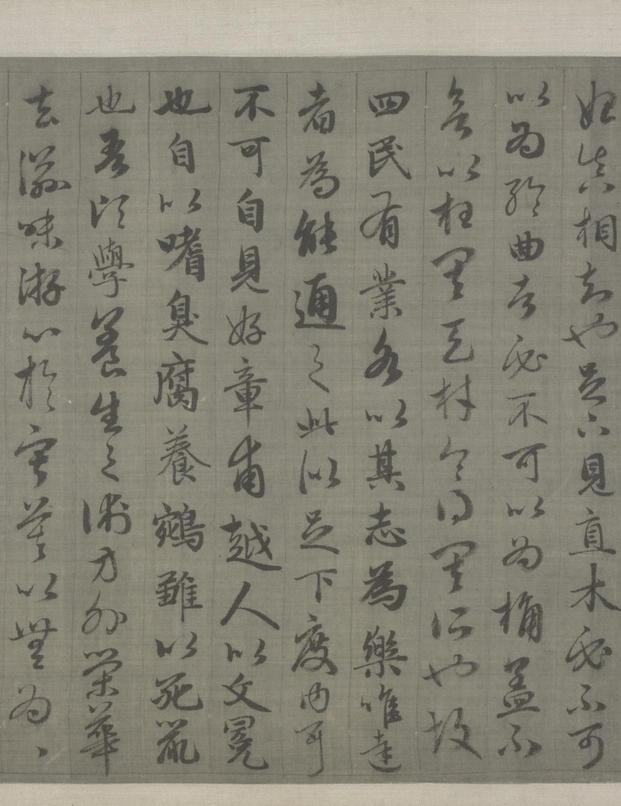 始真相知也足下見直木必不可
以為輪曲者必不可以為桷蓋不
欲以枉其天材令得其所也故
四民有業各以其志為樂唯達
者為能通之此似足下度內耳
不可自見好章甫越人以文冕
也自以嗜臭腐養鵷雛以死鼠
也吾頃學養生之術方外榮華
去滋味游心於寂莫以無為、